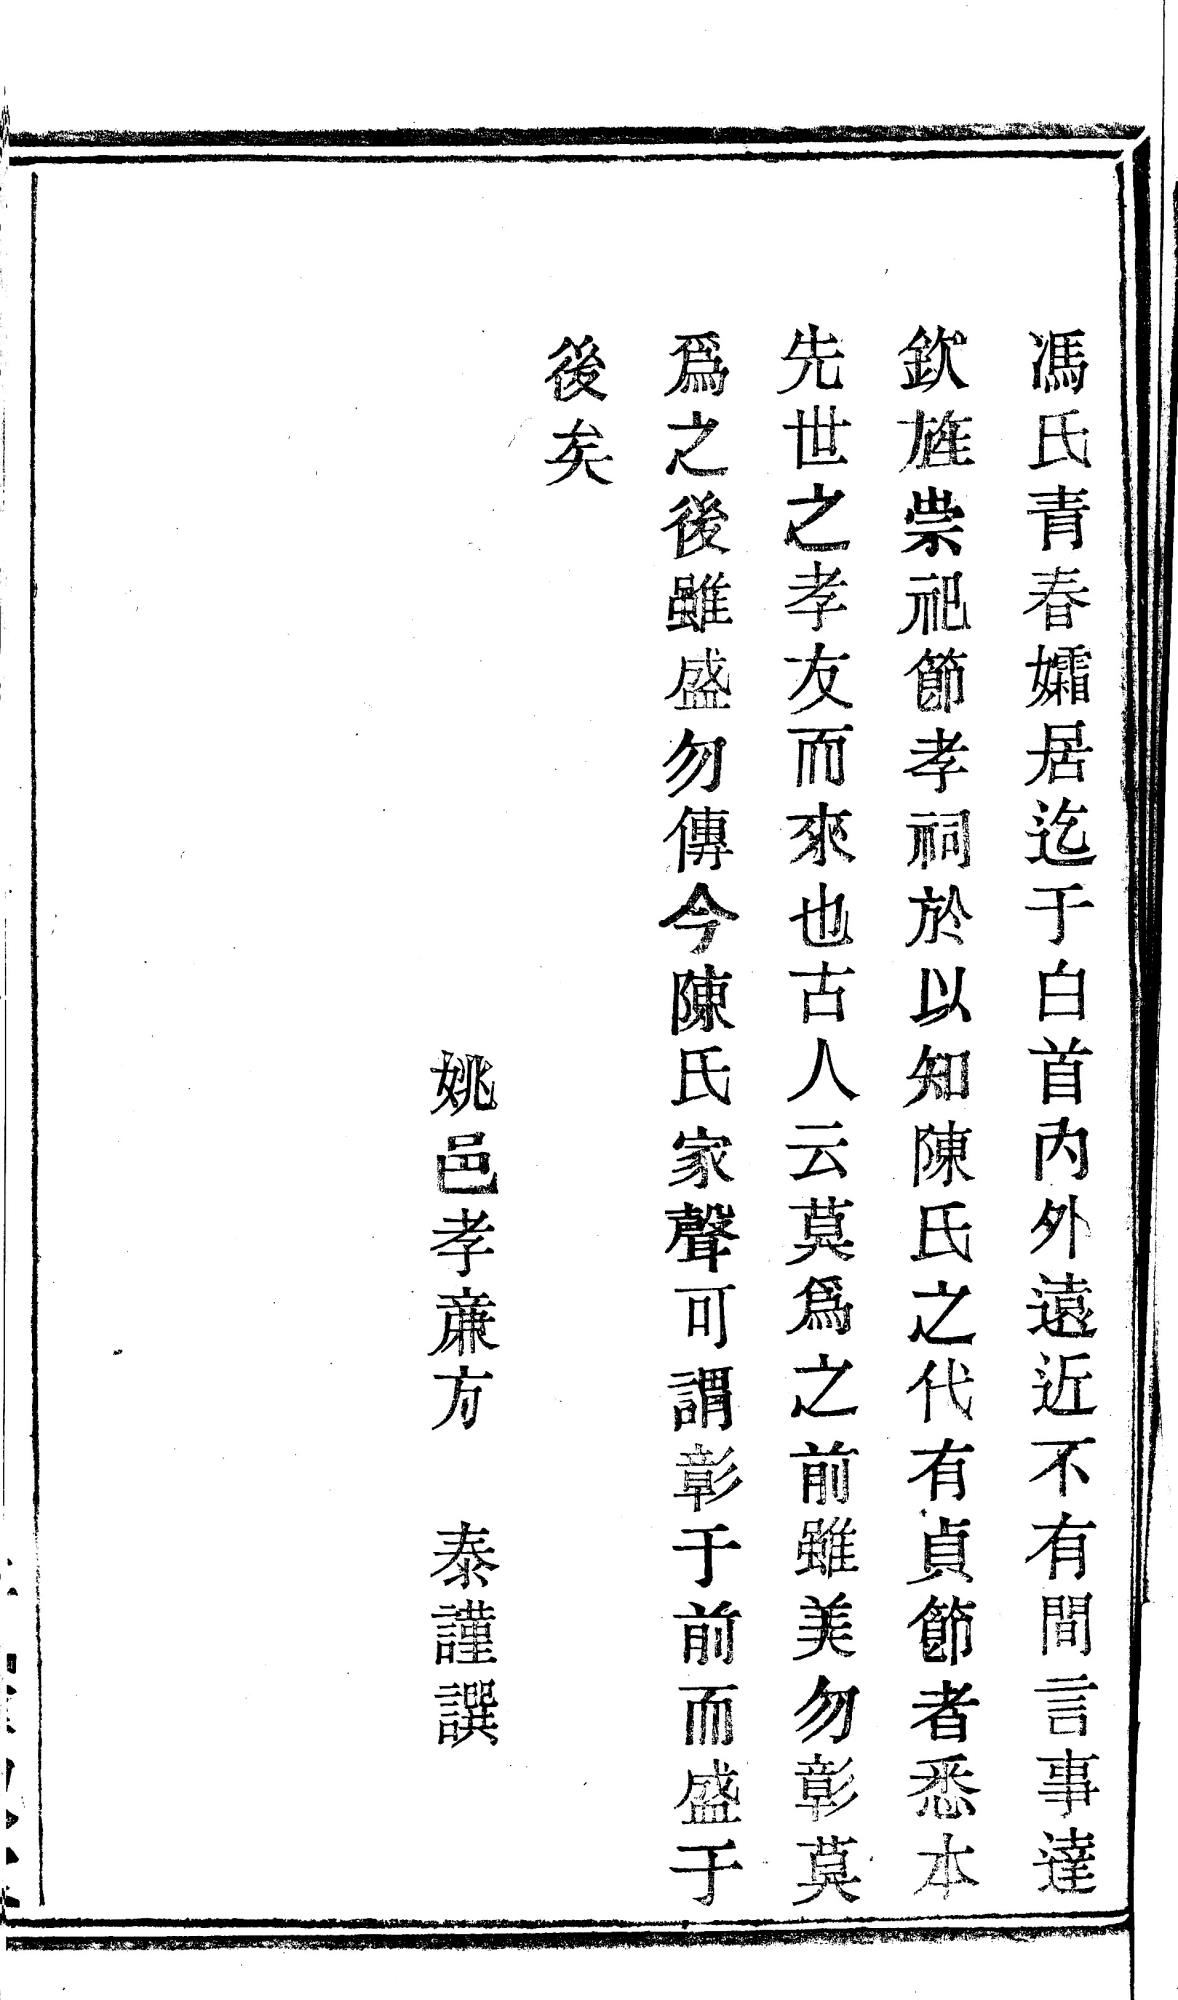 馮氏青春孀居迄于白首內外遠近不有間言事達
欽旌崇祀節孝祠於以知陳氏之代有貞節者悉本
先世之孝友而來也古人云莫爲之前雖美勿彰莫
爲之後雖盛勿傳今陳氏家聲可謂彰于前而盛于
後矣
姚邑孝亷方　泰謹譔